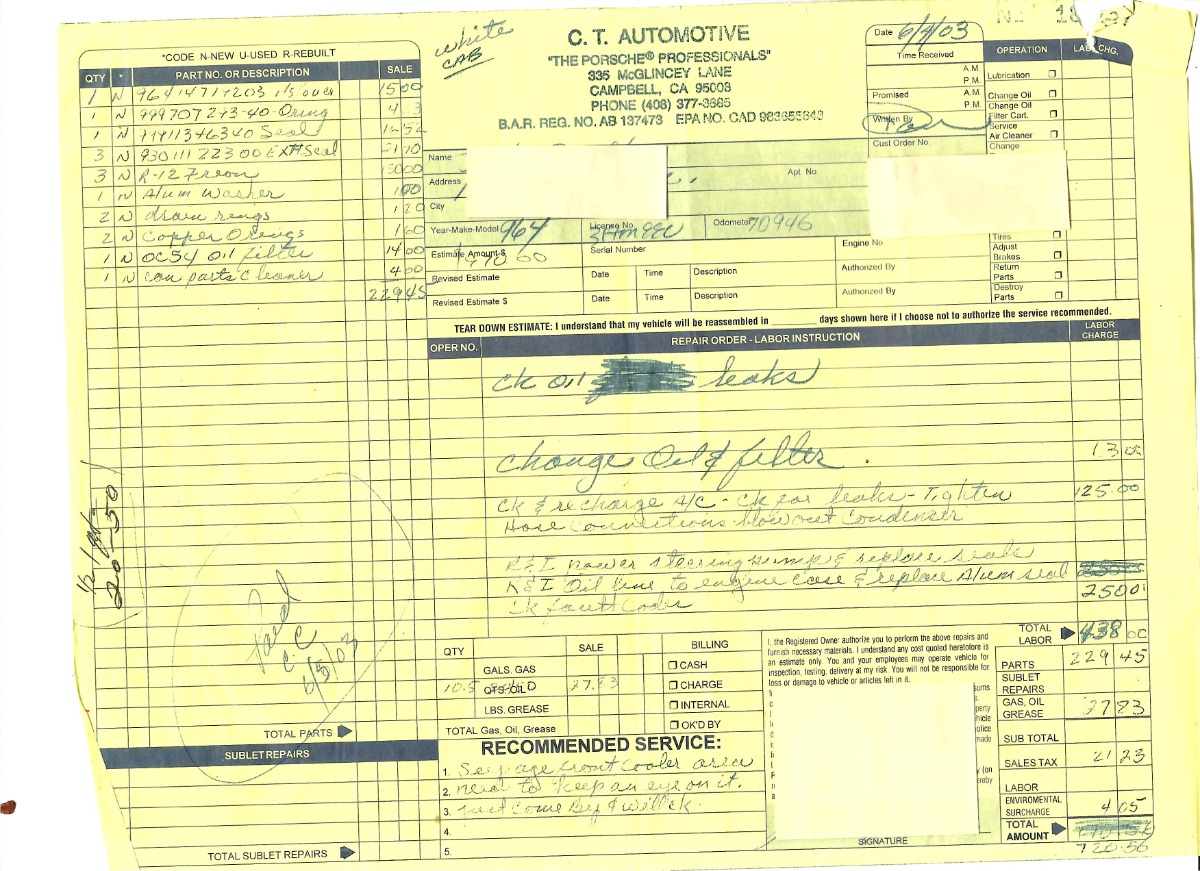 white
CAB
C. T. AUTOMOTIVE
"THE PORSCHE® PROFESSIONALS"
335 McGLINCEY LANE
CAMPBELL, CA 95008
PHONE (408) 377-3865
B.A.R. REG. NO. AB 137473 EPA NO. CAD 983655843
Date 6/4/03
Time Received
A.M.
P.M.
Promised A.M.
P.M.
Written By
Cust Order No.
OPERATION LAB CHG.
Lubrication
Change Oil
Change Oil
Filter Cart.
Service
Air Cleaner
Change
Tires
Adjust
Brakes
Return
Parts
Destroy
Parts
*CODE N-NEW U-USED R-REBUILT
QTY * PART NO. OR DESCRIPTION SALE
1 N
1 N 999707273-40-Oring
1 N Seal 16 52
3 N 930 111 223 00 EXH Seal
3 N R-12 Freon
1 N Alum Washer 1 00
2 N drain rings 1 20
2 N Copper O rings 1 60
1 N OC54 Oil filter 14 00
1 N can parts Cleaner 4 00
229 45
Name
Address
Apt. No.
City
Year-Make-Model 964
License No.
Odometer 70946
Estimate Amount $
Serial Number
Engine No
Revised Estimate Date Time Description Authorized By
Revised Estimate $ Date Time Description Authorized By
TEAR DOWN ESTIMATE: I understand that my vehicle will be reassembled in ________ days shown here if I choose not to authorize the service recommended.
OPER NO. REPAIR ORDER - LABOR INSTRUCTION LABOR CHARGE
ck oil leaks
change Oil & filter . 13 00
ck & recharge A/C - ck for leaks - Tighten 125.00
Hose Connections blow out Condenser
R&I power steering pump & replace seals
R&I Oil line to engine case & replace Alum seal
ck fault Codes 250 0
1/2
20-50
Paid
CC
6/5/03
TOTAL PARTS
SUBLET REPAIRS
TOTAL SUBLET REPAIRS
QTY SALE
GALS. GAS
10.5 QTS. OIL 27.83
LBS. GREASE
TOTAL Gas, Oil, Grease
BILLING
CASH
CHARGE
INTERNAL
OK'D BY
RECOMMENDED SERVICE:
1. Seepage front Cooler area
2. need to keep an eye on it.
3. just come by & will ck.
4.
5.
I, the Registered Owner authorize you to perform the above repairs and
furnish necessary materials. I understand any cost quoted heretofore is
an estimate only. You and your employees may operate vehicle for
inspection, testing, delivery at my risk. You will not be responsible for
loss or damage to vehicle or articles left in it.
SIGNATURE
TOTAL LABOR 438 00
PARTS 229 45
SUBLET REPAIRS
GAS, OIL GREASE 27 83
SUB TOTAL
SALES TAX 21 23
LABOR
ENVIROMENTAL SURCHARGE 4 05
TOTAL AMOUNT
720.56